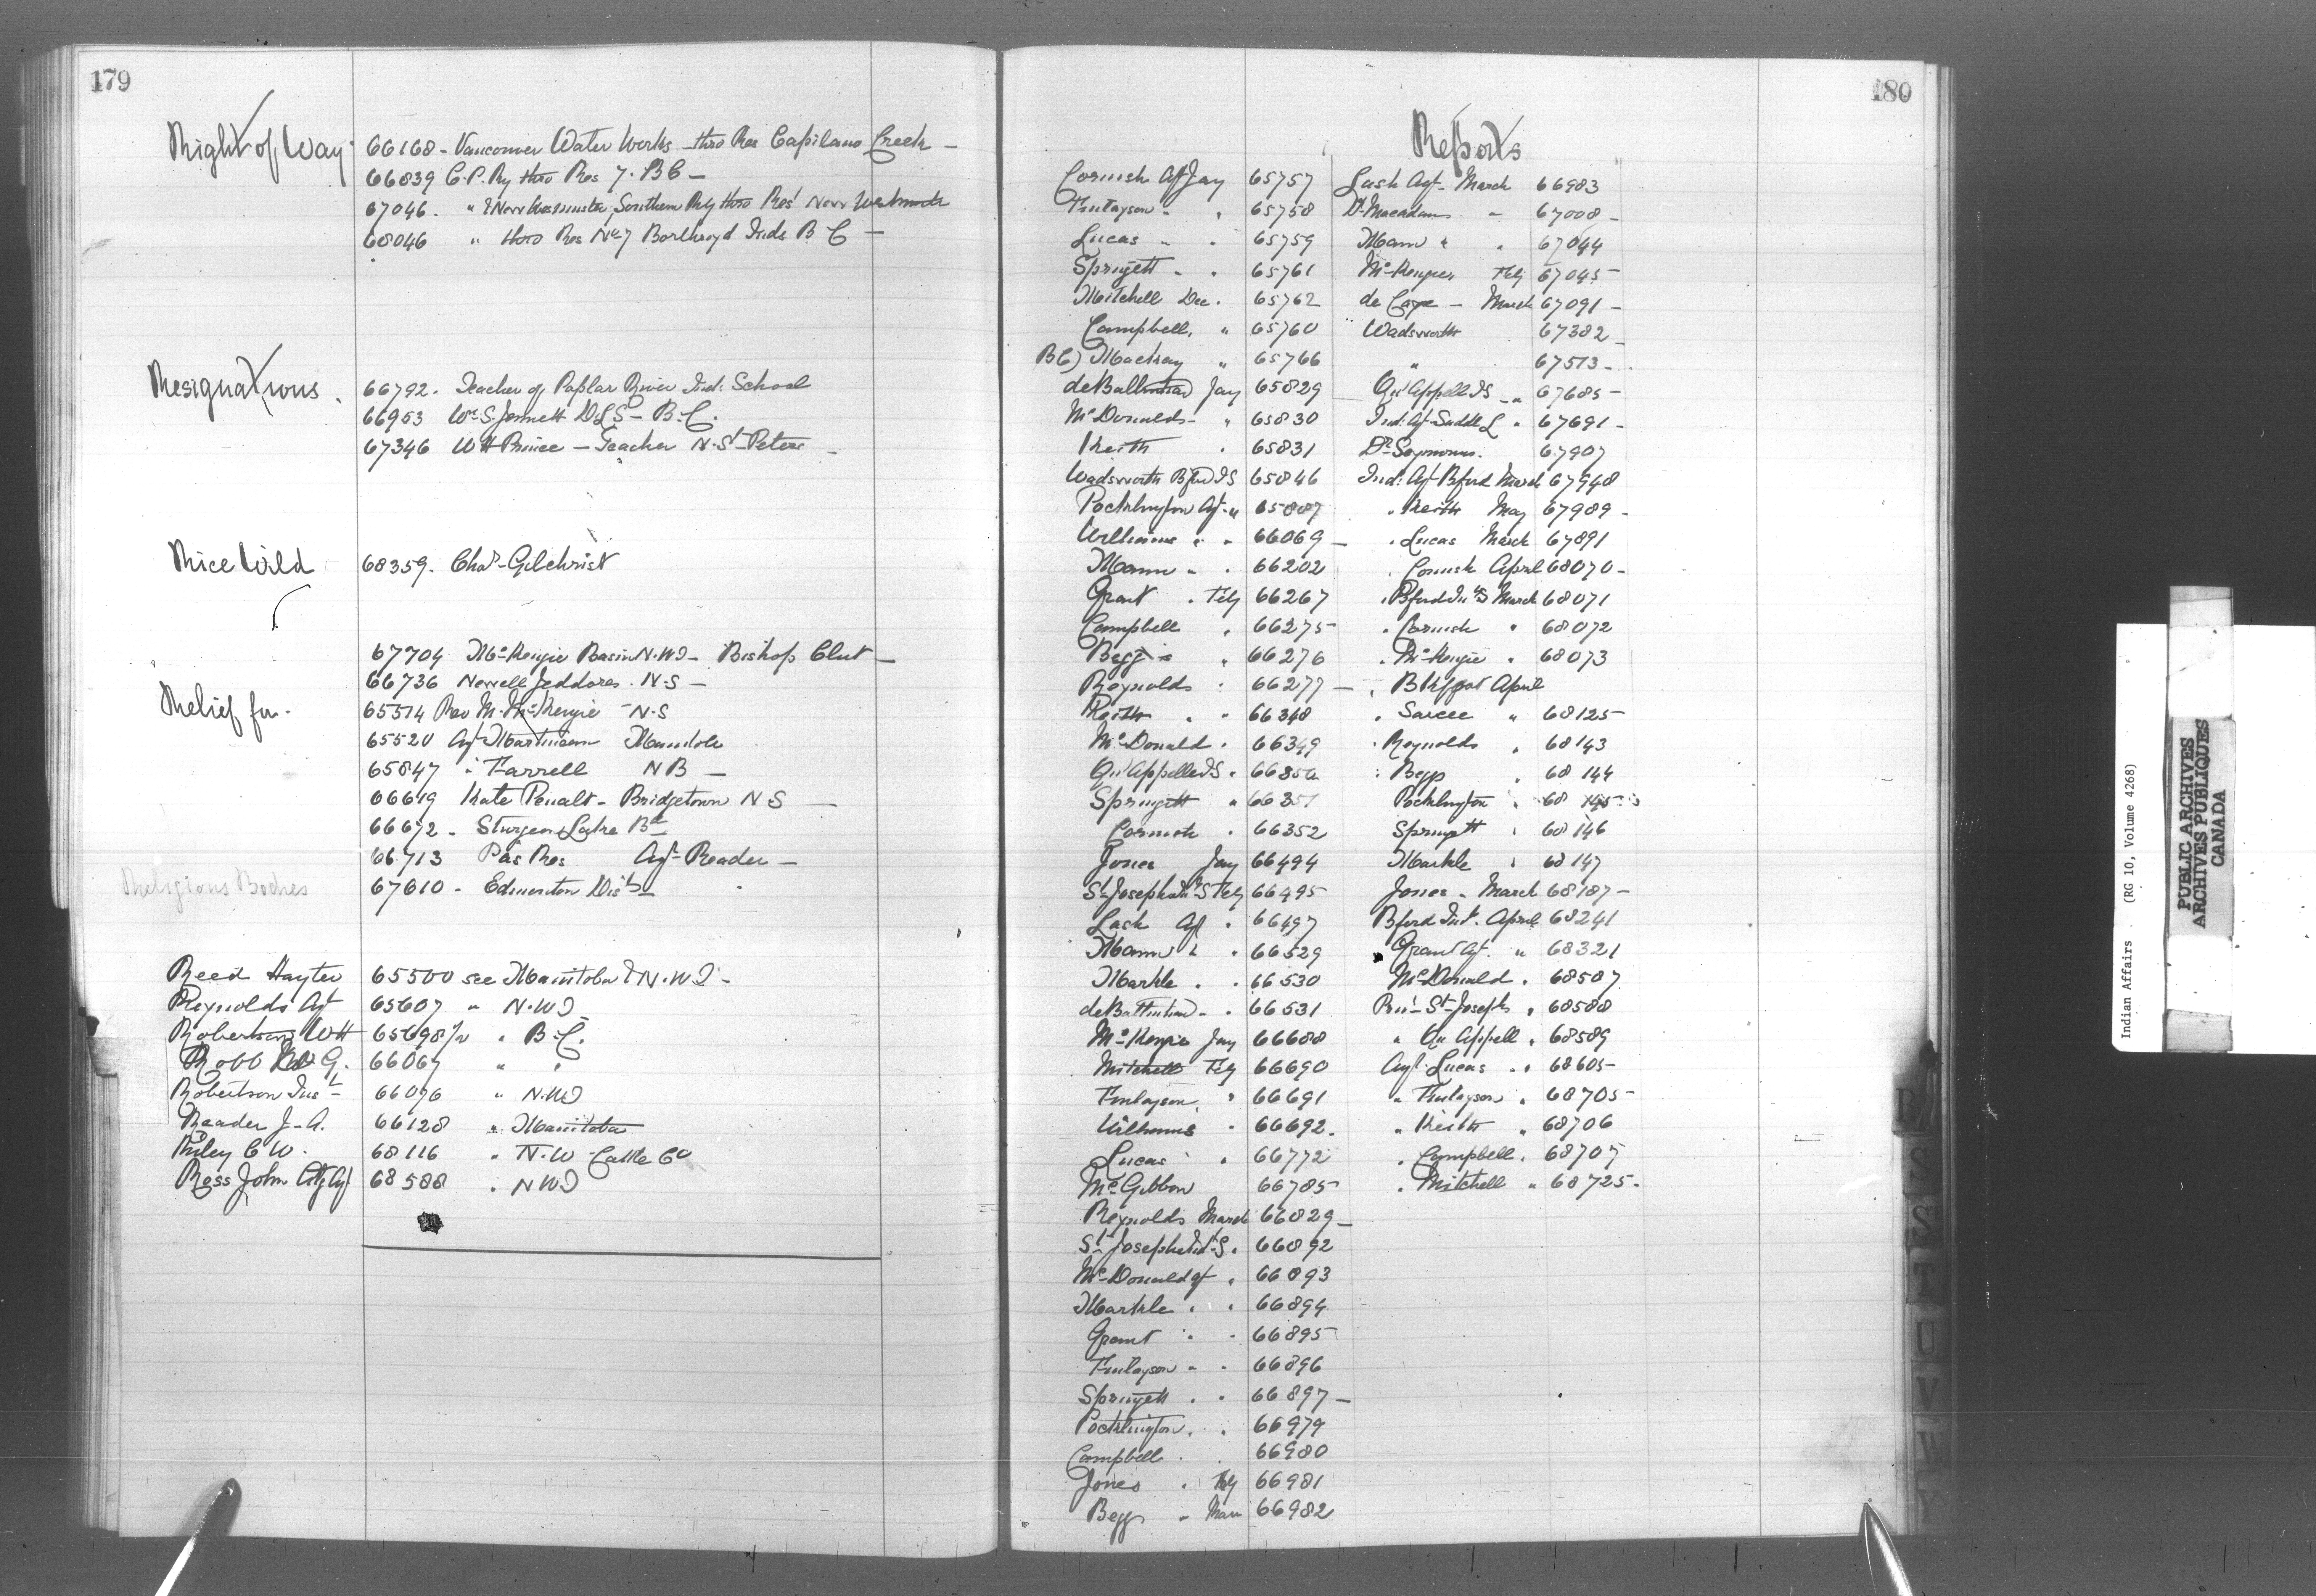 179
Right of Way
66168 - Vancouver Water Works - thro Res Capilano Creek -
66839 C.P. Ry thro Res 7. B C -
67046 - " & New Westminster Southern Rly thro Res New Westminster
68046 " thro Res No 7 Boothroyd Inds B C -
Resignations.
66792 - Teacher of Poplar River Ind. School
66953 Wm S. Jemmett D L S - B.C.
67346 W H Prince - Teacher N. St Peters -
Rice Wild
68359. Chas Gilchrist
67704 McKenzie Basin N.W.T - Bishop Clut -
66736 Newell Jeddores. N.S -
Relief for.
65514 Rev M. McKenzie - N.S
65520 Agt Martineau Manitoba
65847 " Farrell N B -
66649 Kate Penalt - Bridgetown N S -
66672 - Sturgeon Lake Bd
66713 Pas Res Agt Reader -
Religious Bodies
67610 - Edmonton Dist -
Reed Hayter 65500 see Manitoba & N.W.T -
Reynolds Agt 65607 " N.W.T
Robertson W H 65698 1/2 " B.C.
Robb G. 66067 " "
Robertson Inst 66096 " N.W.T
Reader J. A. 66128 " Manitoba
Riley C W. 68116 " N.W Cattle Co
Ross John Agt 68588 " N W T
180
Reports
Cornish Agt Jay 65757 Lash Agt - March 66983
Finlayson " " 65758 Dr Macadam " 67008 -
Lucas " " 65759 Mann " " 67044
Springett " " 65761 McKenzie Feby 67045 -
Mitchell Dec. 65762 de Caze - March 67091 -
Campbell, " 65760 " Wadsworth 67382 -
B C) Mackay " 65766 " 67513 -
de Balinhard Jay 65829 Qu'Appelle I S - " 67685 -
McDonalds - " 65830 Ind. Agt Saddle L " 67691 -
Keith " 65831 Dr Seymour. 67907
Wadsworth Bford I S 65846 Ind. Agt Bford March 67948
Pocklington Agt " 65887 " Keith May 67989 -
Williams " " 66069 - " Lucas March 67891
Mann " " 66202 " Cornish April 68070 -
Grant " Feby 66267 " Bford Ins March 68071
Campbell " 66275 - " Cornish " 68072
Begg " " 66276 " McKenzie " 68073
Reynolds " 66277 - " Blkfoot April
Keith " " 66348 " Sarcee " 68125 -
McDonald " 66349 " Reynolds " 68143
Qu'Appelle I S " 66350 " Begg " 68144
Springett " 66351 Pocklington " 68145
Cornish " 66352 Springett " 68146
Jones Jay 66494 Markle " 68147
St Josephs Ind S Feby 66495 Jones - March 68187 -
Lash Agt " 66497 Bford Inst. April 68241
Mann " " 66529 " Grant Agt. " 68321
Markle " " 66530 McDonald " 68507
de Balinhard - " 66531 Prin. St Josephs " 68588
McKenzie Jay 66688 " Qu Appell " 68589
Mitchell Feby 66690 Agt Lucas " " 68605 -
Finlayson " " 66691 " Finlayson " 68705 -
Williams " 66692 - " Keith " 68706
Lucas " " 66772 " Campbell " 68707
McGibbon 66785 - " Mitchell " 68725 -
Reynolds March 66829 -
St Josephs Ind. S. " 66892
McDonald Agt " 66893
Markle " " 66894
Grant " " 66895
Finlayson " " 66896
Springett " " 66897 -
Pocklington " " 66979
Campbell " 66980
Jones " Feby 66981
Begg " Mar 66982
Indian Affairs (RG 10, Volume 4268)
PUBLIC ARCHIVES
ARCHIVES PUBLIQUES
CANADA
S
T
U
V
W